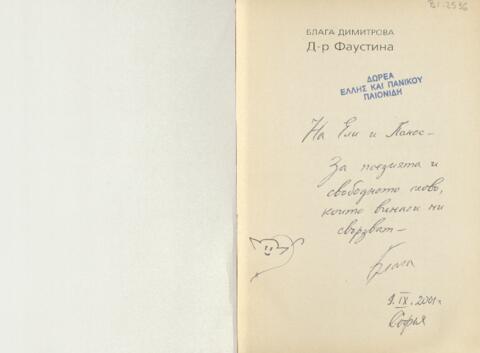 БІ-2536
БЛАГА ДИМИТРОВА
Д-р Фаустина
ΔΩΡΕΑ
ΕΛΛΗΣ ΚΑΙ ΠΑΝΙΚΟΥ
ΠΑΙΟΝΙΔΗ
На Ели и Панос –
За поезията и
свободното слово,
които винаги ни
свързват –
Блага
9. IX. 2001 г.
София